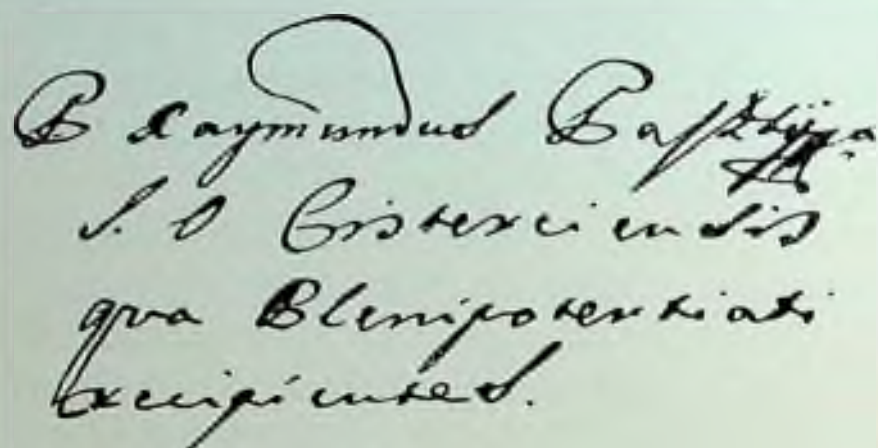 P Raymundus
S. O Cisterciensis
qva Plenipotentiati
excipientes.